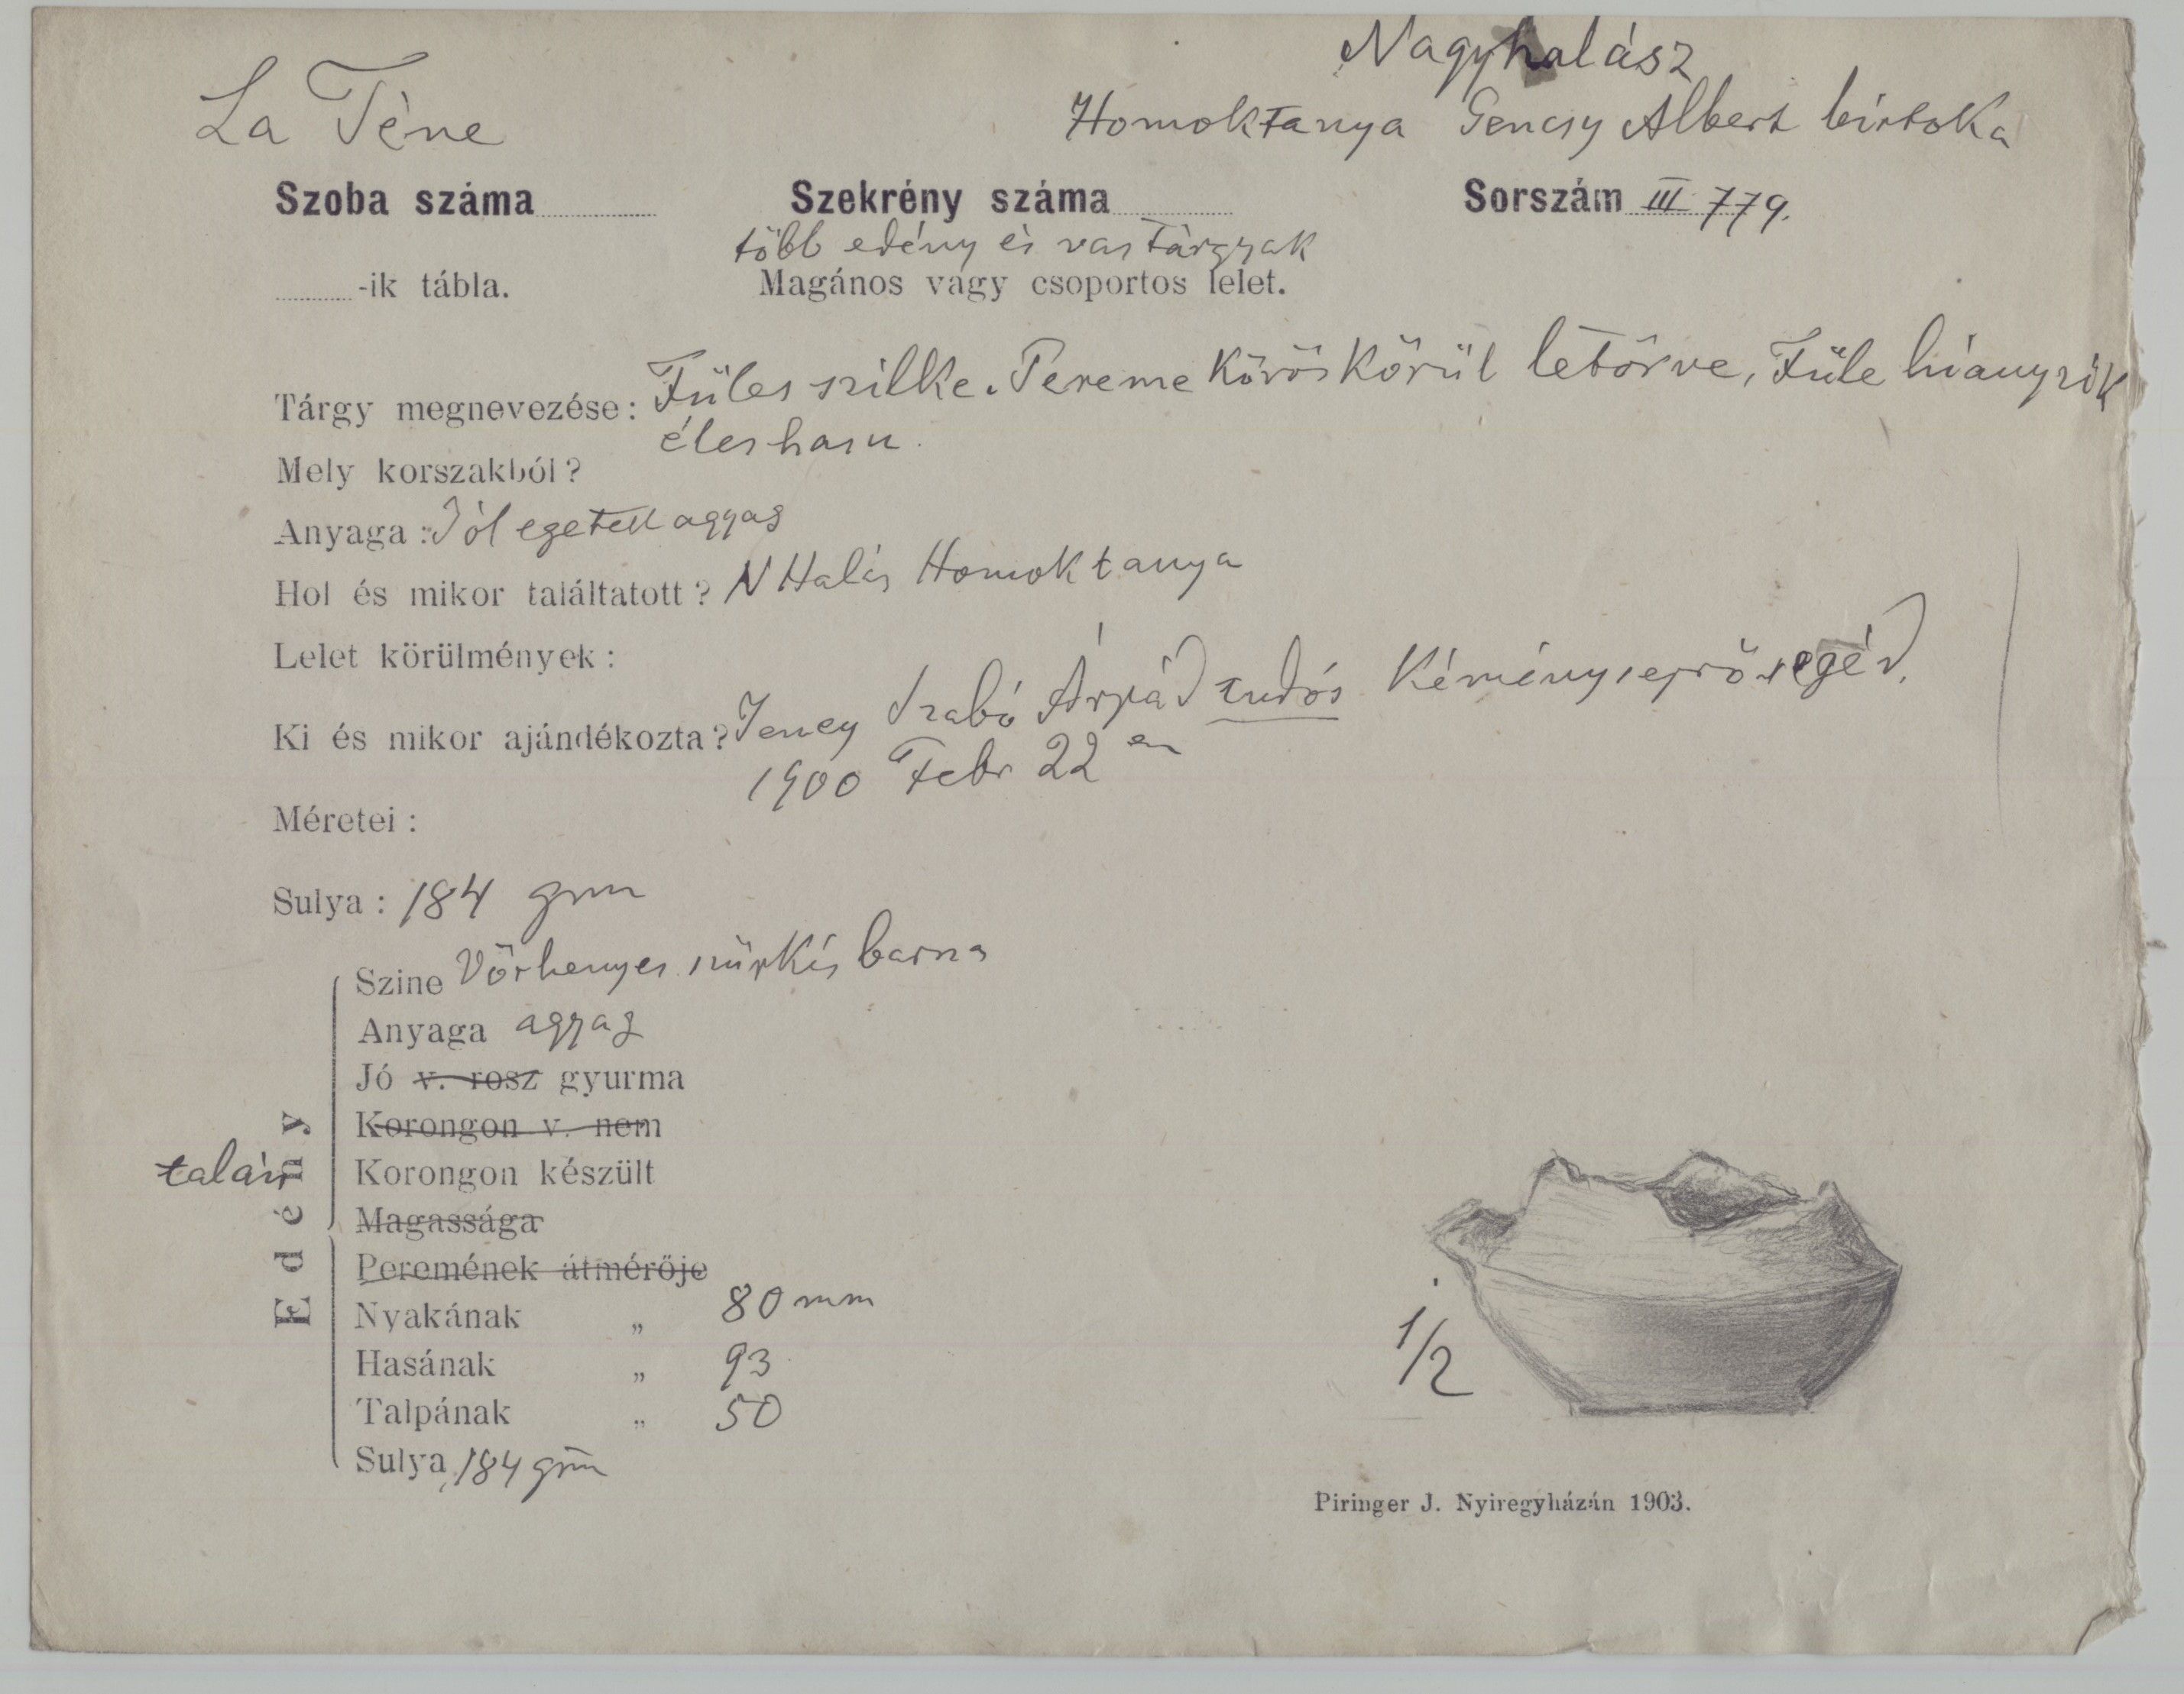 Nagyhalász
La Tène
Homoktanya Gencsy Albert birtoka
Szoba száma
Szekrény száma
Sorszám III 779.
több edény és vas tárgyak
-ik tábla.
Magános vagy csoportos lelet.
Tárgy megnevezése: Füles szilke. Pereme körös körül letörve, Füle hiányzik
éles hasu.
Mely korszakból?
Anyaga: Jól egetett agyag
Hol és mikor találtatott? N Halás Homoktanya
Lelet körülmények:
Ki és mikor ajándékozta? Jeney Szabó Árpád tudós Kéményseprő segéd.
1900 Febr 22 en
Méretei:
Sulya: 184 grm
Szine Vörhenyes szürkés barna
Anyaga agyag
Jó v. rosz gyurma
Korongon v. nem
talán Korongon készült
Magassága
Peremének átmérője
Nyakának „ 80 mm
Hasának „ 93
Talpának „ 50
Sulya 184 grm
Edény
1/2
Piringer J. Nyiregyházán 1903.